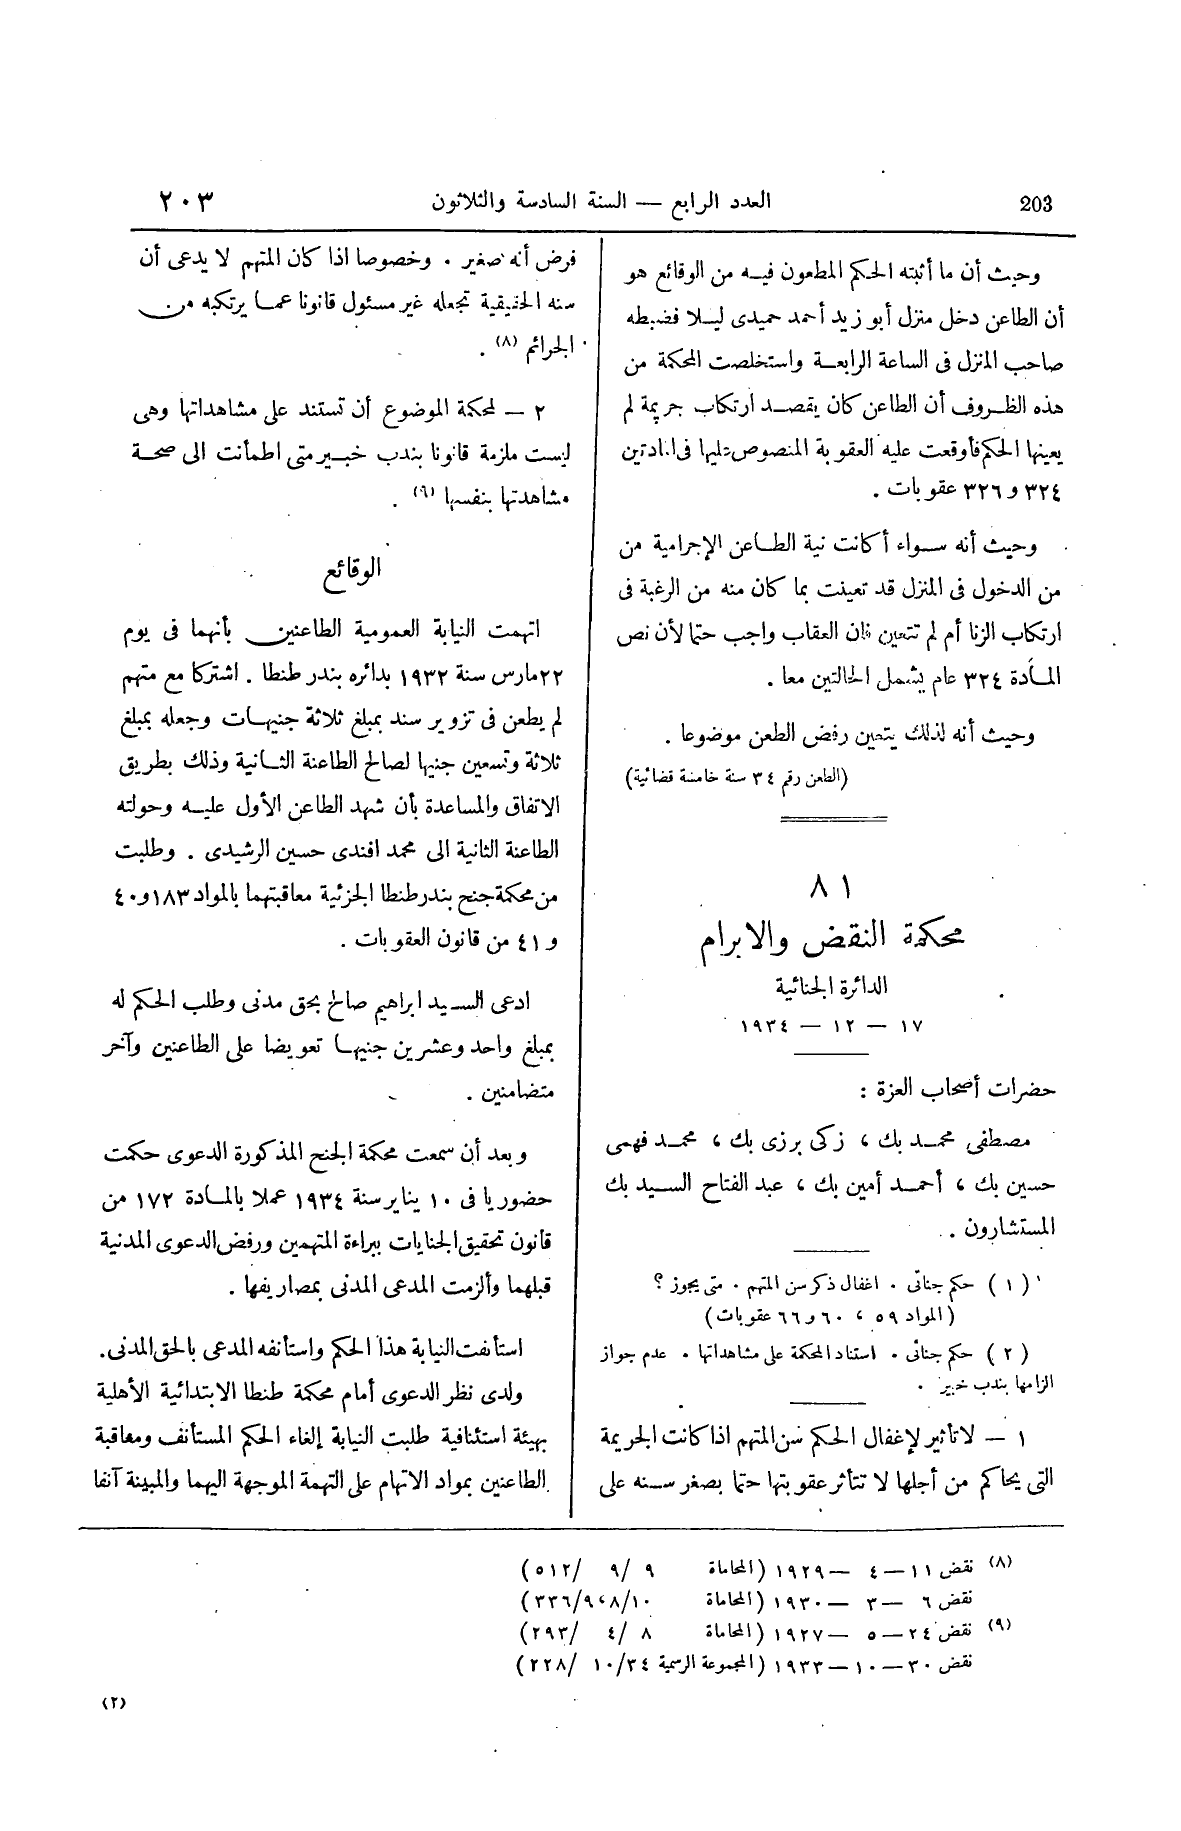 203
العدد الرابع — السنة السادسة والثلاثون
٢٠٣
وحيث أن ما أثبته الحكم المطعون فيه من الوقائع هو
أن الطاعن دخل منزل أبو زيد أحمد حميدى ليلا فضبطه
صاحب المنزل فى الساعة الرابعة واستخلصت المحكمة من
هذه الظروف أن الطاعن كان يقصد ارتكاب جريمة لم
يعينها الحكم فأوقعت عليه العقوبة المنصوص عليها فى المادتين
٣٢٤ و ٣٢٦ عقوبات .
وحيث أنه سواء أكانت نية الطاعن الإجرامية من
من الدخول فى المنزل قد تعينت بما كان منه من الرغبة فى
ارتكاب الزنا أم لم تتعين فان العقاب واجب حتما لأن نص
المادة ٣٢٤ عام يشمل الحالتين معا .
وحيث أنه لذلك يتعين رفض الطعن موضوعا .
(الطعن رقم ٣٤ سنة خامسة قضائية)
٨١
محكمة النقض والابرام
الدائرة الجنائية
١٧ — ١٢ — ١٩٣٤
حضرات أصحاب العزة :
مصطفى محمد بك ، زكى برزى بك ، محمد فهمى
حسين بك ، أحمد أمين بك ، عبد الفتاح السيد بك
المستشارون .
(١) حكم جنائى . اغفال ذكر سن المتهم . متى يجوز ؟
(المواد ٥٩ ، ٦٠ و ٦٦ عقوبات)
(٢) حكم جنائى . استناد المحكمة على مشاهداتها . عدم جواز
الزامها بندب خبير .
١ — لا تأثير لإغفال الحكم سن المتهم اذا كانت الجريمة
التى يحاكم من أجلها لا تتأثر عقوبتها حتما بصغر سنه على
فرض أنه صغير . وخصوصا اذا كان المتهم لا يدعى أن
سنه الحقيقية تجعله غير مسئول قانونا عما يرتكبه من
الجرائم (٨) .
٢ — لمحكمة الموضوع أن تستند على مشاهداتها وهى
ليست ملزمة قانونا بندب خبير متى اطمأنت الى صحة
مشاهدتها بنفسها (٩) .
الوقائع
اتهمت النيابة العمومية الطاعنين بأنهما فى يوم
٢٢ مارس سنة ١٩٣٢ بدائره بندر طنطا . اشتركا مع متهم
لم يطعن فى تزوير سند بمبلغ ثلاثة جنيهات وجعله بمبلغ
ثلاثة وتسعين جنيها لصالح الطاعنة الثانية وذلك بطريق
الاتفاق والمساعدة بأن شهد الطاعن الأول عليه وحولته
الطاعنة الثانية الى محمد افندى حسين الرشيدى . وطلبت
من محكمة جنح بندر طنطا الجزئية معاقبتهما بالمواد ١٨٣ و ٤٠
و ٤١ من قانون العقوبات .
ادعى السيد ابراهيم صالح بحق مدنى وطلب الحكم له
بمبلغ واحد وعشرين جنيها تعويضا على الطاعنين وآخر
متضامنين .
وبعد أن سمعت محكمة الجنح المذكورة الدعوى حكمت
حضوريا فى ١٠ يناير سنة ١٩٣٤ عملا بالمادة ١٧٢ من
قانون تحقيق الجنايات ببراءة المتهمين ورفض الدعوى المدنية
قبلهما وألزمت المدعى المدنى بمصاريفها .
استأنفت النيابة هذا الحكم واستأنفه المدعى بالحق المدنى .
ولدى نظر الدعوى أمام محكمة طنطا الابتدائية الأهلية
بهيئة استئنافية طلبت النيابة إلغاء الحكم المستأنف ومعاقبة
الطاعنين بمواد الاتهام على التهمة الموجهة اليهما والمبينة آنفا
(٨) نقض ١١ — ٤ — ١٩٢٩ (المحاماة ٩ / ٩ / ٥١٢)
نقض ٦ — ٣ — ١٩٣٠ (المحاماة ١٠/٨،٩/٣٣٦)
(٩) نقض ٢٤ — ٥ — ١٩٢٧ (المحاماة ٨ / ٤ / ٢٩٣)
نقض ٣٠ — ١٠ — ١٩٣٣ (المجموعة الرسمية ٣٤/ ١٠ / ٢٢٨)
(٢)